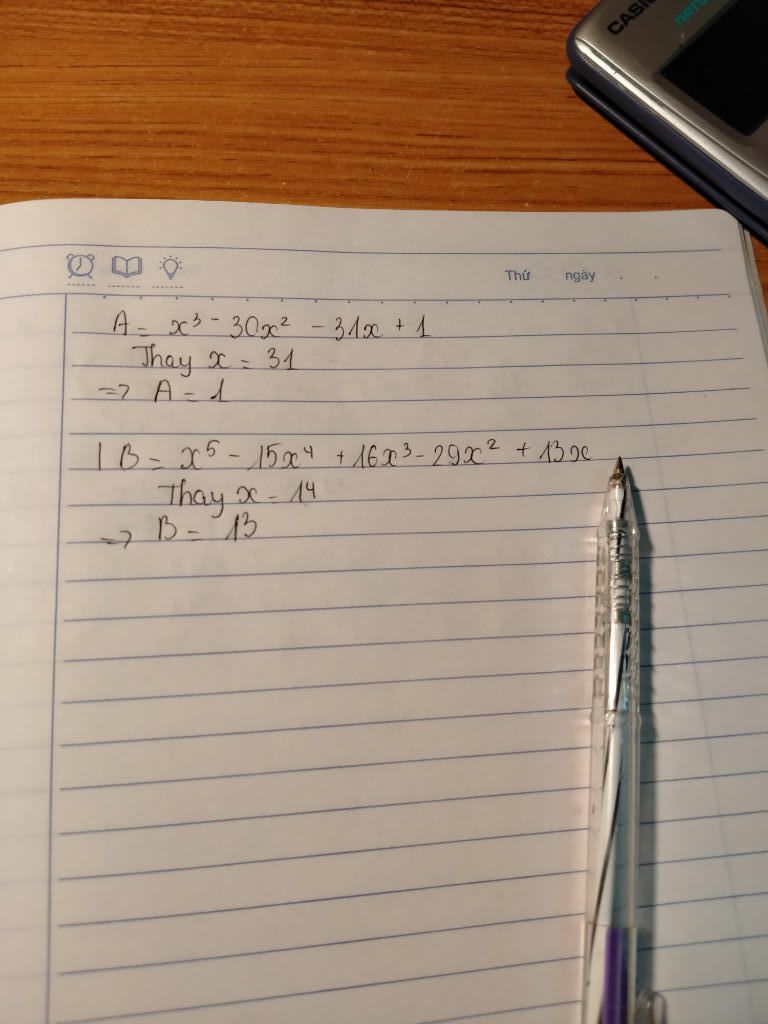 CASIO
Thứ ngày . .
A = x³ - 30x² - 31x + 1
Thay x = 31
=> A = 1
| B = x⁵ - 15x⁴ + 16x³ - 29x² + 13x
Thay x = 14
=> B = 13